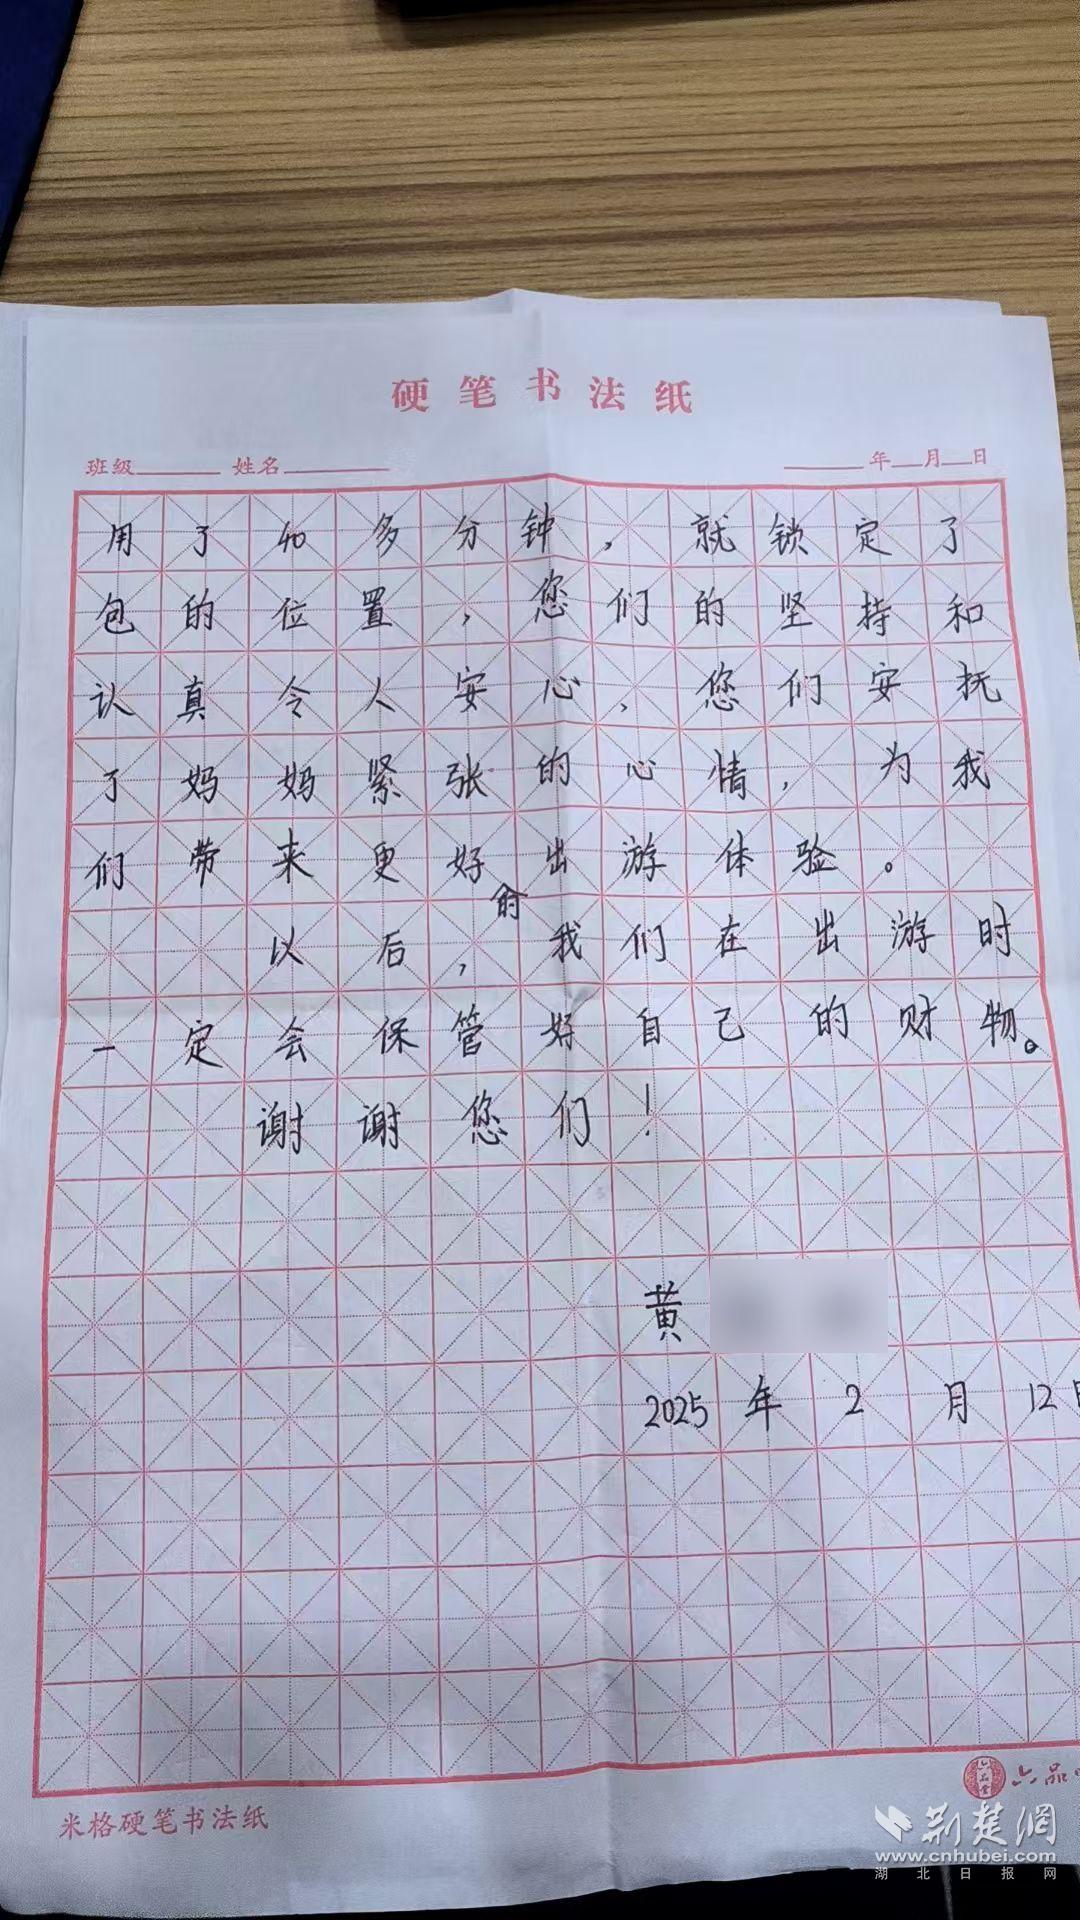 硬笔书法纸
班级 姓名 年 月 日
用了40多分钟，就锁定了
包的位置，您们的坚持和
认真令人安心，您们安抚
了妈妈紧张的心情，为我
们带来更好的出游体验。
以后，我们在出游时
一定会保管好自己的财物。
谢谢您们！
黄
2025年2月12日
六品
米格硬笔书法纸
荆楚網
www.cnhubei.com
湖北日报网